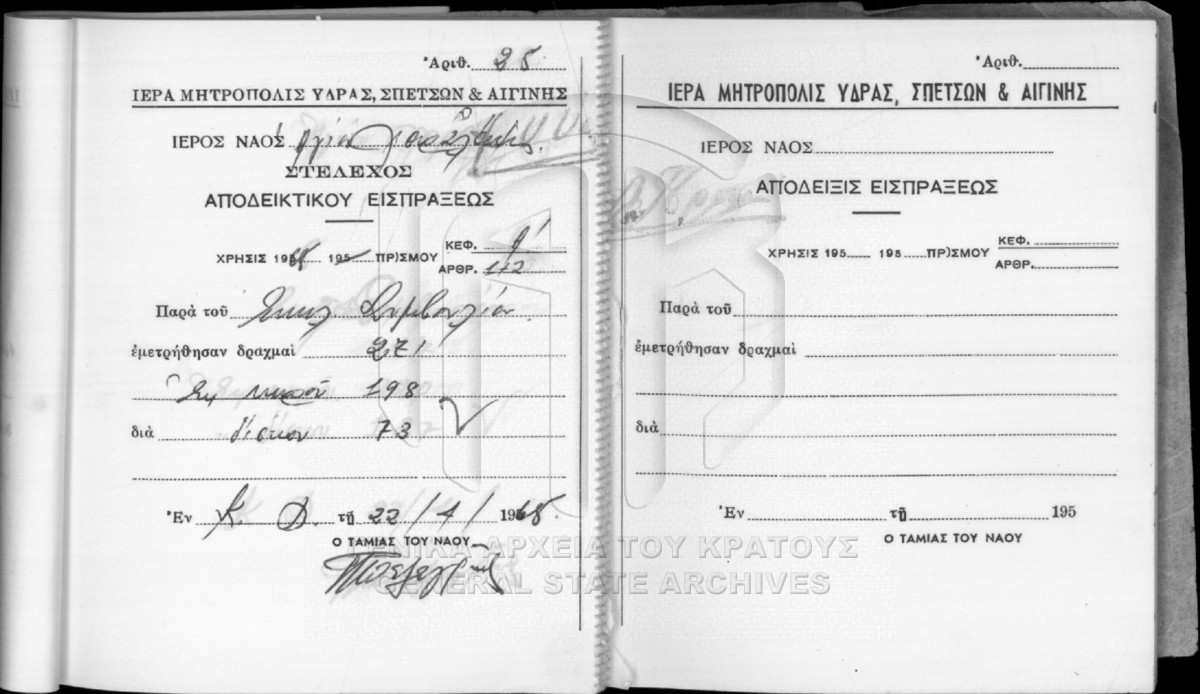 Ἀριθ. 25
ΙΕΡΑ ΜΗΤΡΟΠΟΛΙΣ ΥΔΡΑΣ, ΣΠΕΤΣΩΝ & ΑΙΓΙΝΗΣ
ΙΕΡΟΣ ΝΑΟΣ
ΣΤΕΛΕΧΟΣ
ΑΠΟΔΕΙΚΤΙΚΟΥ ΕΙΣΠΡΑΞΕΩΣ
ΧΡΗΣΙΣ 1968 195 ΠΡ)ΣΜΟΥ
ΚΕΦ. Α'
ΑΡΘΡ. 1+2
Παρὰ τοῦ Ἐκκλ. Συμβουλίου
ἐμετρήθησαν δραχμαὶ 271
198
διὰ δίσκου 73
Ἐν Κ. Δ. τῇ 22/4/1968
Ο ΤΑΜΙΑΣ ΤΟΥ ΝΑΟΥ
Ἀριθ.
ΙΕΡΑ ΜΗΤΡΟΠΟΛΙΣ ΥΔΡΑΣ, ΣΠΕΤΣΩΝ & ΑΙΓΙΝΗΣ
ΙΕΡΟΣ ΝΑΟΣ
ΑΠΟΔΕΙΞΙΣ ΕΙΣΠΡΑΞΕΩΣ
ΧΡΗΣΙΣ 195 195 ΠΡ)ΣΜΟΥ
ΚΕΦ.
ΑΡΘΡ.
Παρὰ τοῦ
ἐμετρήθησαν δραχμαὶ
διὰ
Ἐν τῇ 195
Ο ΤΑΜΙΑΣ ΤΟΥ ΝΑΟΥ
ΓΕΝΙΚΑ ΑΡΧΕΙΑ ΤΟΥ ΚΡΑΤΟΥΣ
GENERAL STATE ARCHIVES